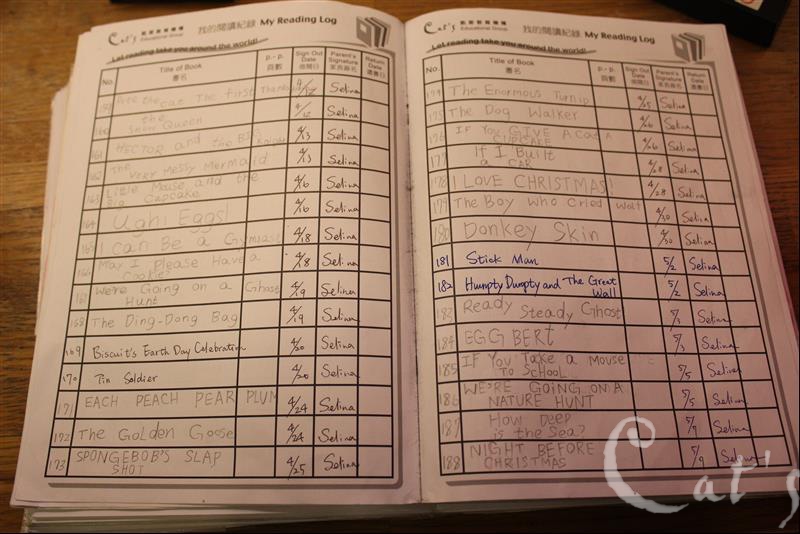 Cat's
Educational Group
我的閱讀紀錄 My Reading Log
Let reading take you around the world!
No. Title of Book 書名 p.-p. 頁數 Sign Out Date Parent's Signature 家長簽名 Return Date 還書日
159 Pete the cat The first Thanksgiving 4/12 Selina
160 the Snow Queen 4/12 Selina
161 HECTOR and the BIG Knight 4/13 Selina
162 The Very Messy Mermaid 4/13 Selina
163 Little Mouse and the Big Cupcake 4/16 Selina
164 Ugh! Eggs! 4/16 Selina
165 I can Be a Gymnast 4/18 Selina
166 May I Please Have a Cookie? 4/18 Selina
167 We're Going on a Ghost Hunt 4/19 Selina
168 The Ding-Dong Bag 4/19 Selina
169 Biscuit's Earth Day Celebration 4/20 Selina
170 Tin Soldier 4/20 Selina
171 EACH PEACH PEAR PLUM 4/24 Selina
172 The Golden Goose 4/24 Selina
173 SPONGEBOB'S SLAP SHOT 4/25 Selina
Cat's
Educational Group
我的閱讀紀錄 My Reading Log
Let reading take you around the world!
No. Title of Book 書名 p.-p. 頁數 Sign Out Date Parent's Signature 家長簽名 Return Date 還書日
174 The Enormous Turnip 4/25 Selina
175 The Dog Walker 4/26 Selina
176 IF YOU GIVE A Cat A CUPCAKE 4/26 Selina
177 If I Built a CAR 4/28 Selina
178 I LOVE CHRISTMAS! 4/28 Selina
179 The Boy Who Cried Wolf 4/30 Selina
180 Donkey Skin 4/30 Selina
181 Stick Man 5/2 Selina
182 Humpty Dumpty and The Great Wall 5/2 Selina
183 Ready Steady Ghost 5/3 Selina
184 EGG BERT 5/3 Selina
185 IF You Take a Mouse TO SCHOOL 5/5 Selina
186 WE'RE GOING ON A NATURE HUNT 5/5 Selina
187 How Deep is the Sea? 5/7 Selina
188 NIGHT BEFORE CHRISTMAS 5/9 Selina
Cat's